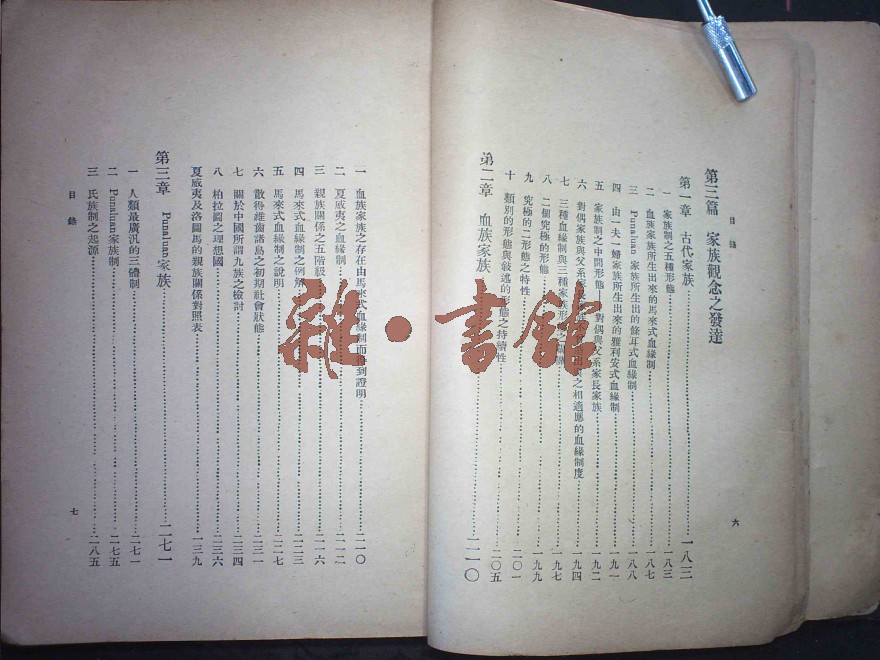 目錄
第三篇 家族觀念之發達
第一章 古代家族 一八三
一 家族制之五種形態 一八三
二 血族家族所生出來的馬來式血緣制 一八七
三 Punaluan 家族所生出的條耳式血緣制 一八八
四 由一夫一婦家族所生出來的雅利安式血緣制 一九一
五 家族制之中間形態 對偶與父系家長家族 一九二
六 對偶家族與父系家 之相適應的血緣制度 一九四
七 三種血緣制與三種家族形 一九七
八 二個究極的形態 一九九
九 究極的二形態之特性 二〇一
十 類別的形態與敍述的形態之持續性 二〇五
第二章 血族家族 二一〇
六
一 血族家族之存在由馬來式血緣制而得到證明 二一〇
二 夏威夷之血緣制 二一二
三 親族關係之五階級 二一六
四 馬來式血緣制之例解 二二三
五 馬來式血緣制之說明 二二七
六 散得維齒諸島之初期社會狀態 二三一
七 關於中國所謂九族之檢討 二三四
八 柏拉圖之理想國 二三六
夏威夷及洛圖馬的親族關係對照表 一三九
第三章 Punaluan 家族 二七一
一 人類最廣汎的三體制 二七一
二 Punaluan 家族制 二七五
三 氏族制之起源 二八五
目錄
七
雜·書館